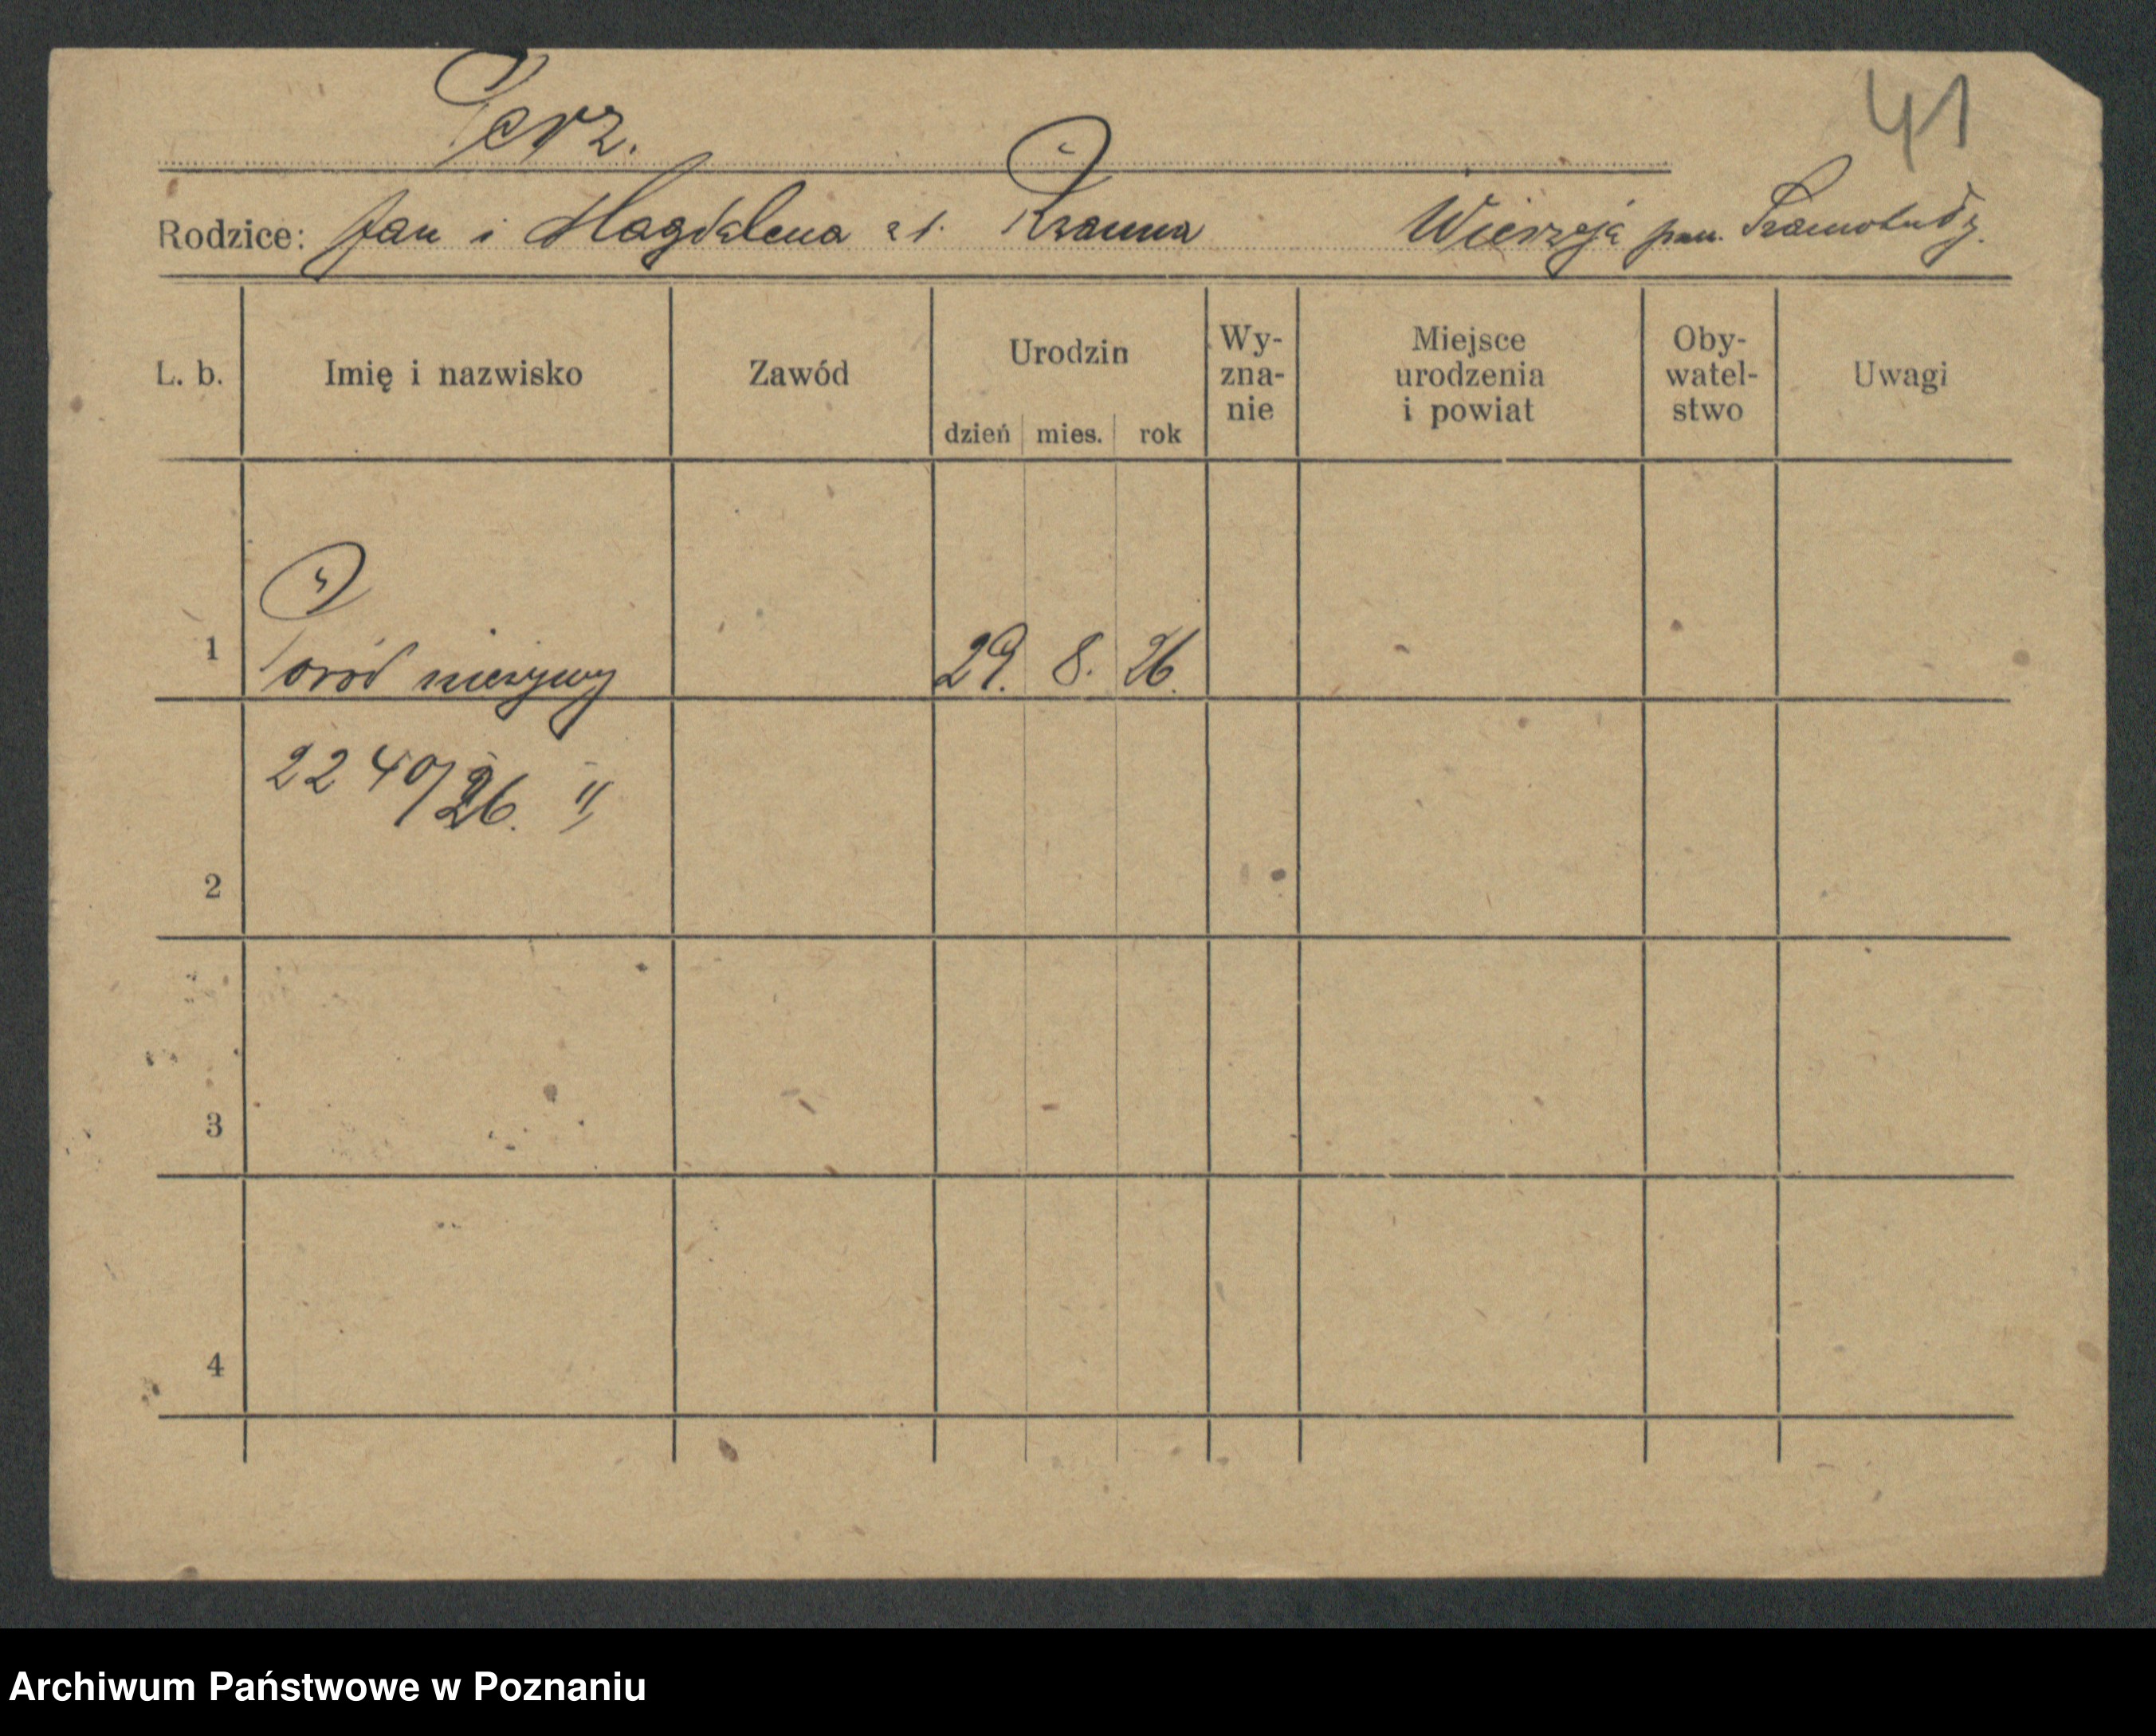 41
Perz.
Rodzice: Jan i Magdalena Wierzeja pow. Szamotuły.
L. b. Imię i nazwisko Zawód Urodzin dzień mies. rok Wy-zna-nie Miejsce urodzenia i powiat Oby-watel-stwo Uwagi
1 Poród nieżywy 29. 8. 26.
2240/26. II
2
3
4
Archiwum Państwowe w Poznaniu